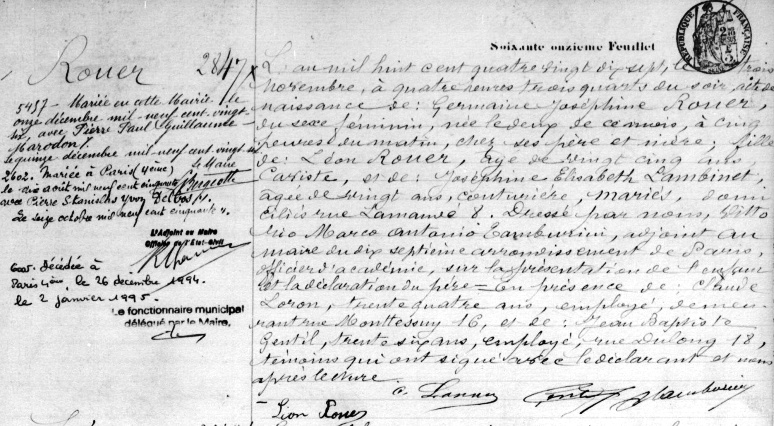 Soixante onzième Feuillet
RÉPUBLIQUE FRANÇAISE
Rouer
2847
5457 – Mariée en cette Mairie le
onze décembre mil neuf cent vingt
six, avec Pierre Paul Guillaume
Marodon.
Le quinze décembre mil neuf cent vingt six
Le Maire
2602. Mariée à Paris (4ème)
le dix août mil neuf cent cinquante
avec Pierre Stanislas Yvon Delbos
Le seize octobre mil neuf cent cinquante
L'Adjoint au Maire
Officier de l'Etat-Civil
Décédée à
Paris le 26 décembre 1994.
le 2 janvier 1995.
Le fonctionnaire municipal
délégué par le Maire,
L'an mil huit cent quatre vingt dix sept, le trois
Novembre, à quatre heures trois quarts du soir, acte de
naissance de: Germaine Joséphine Rouer,
du sexe féminin, née le deux de ce mois, à cinq
heures du matin, chez ses père et mère; fille
de: Léon Rouer, âgé de vingt cinq ans
Cariste, et de: Joséphine Elisabeth Lambinet,
âgée de vingt ans, couturière, mariés, domi
ciliés rue 8. Dressé par nous, Vitto
rio Marco Antonio Tamburini, adjoint au
maire du dix septième arrondissement de Paris,
officier d'académie, sur la présentation de l'enfant
et la déclaration du père = En présence de: Claude
Loron, trente quatre ans, employé, demeu-
rant rue Monttessuy 16, et de: Jean Baptiste
Gentil, trente six ans, employé, rue Dulong 18,
témoins qui ont signé avec le déclarant et nous
après lecture.
Léon Rouer